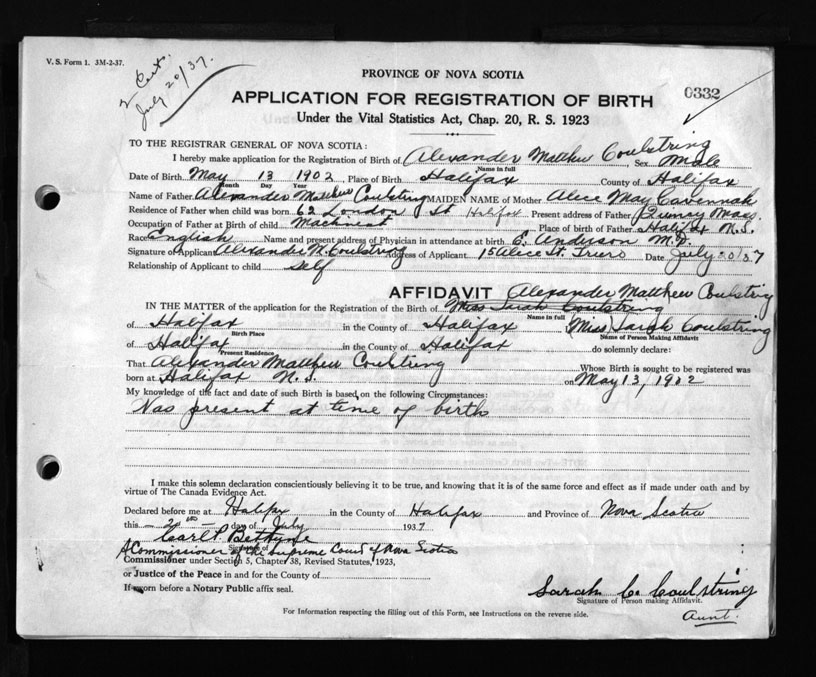 V. S. Form 1. 3M-2-37.
2 Certs.
July 20/37.
PROVINCE OF NOVA SCOTIA
0332
APPLICATION FOR REGISTRATION OF BIRTH
Under the Vital Statistics Act, Chap. 20, R. S. 1923
TO THE REGISTRAR GENERAL OF NOVA SCOTIA:
I hereby make application for the Registration of Birth of Alexander Matthew Coulstring Sex Male
Name in full
Date of Birth May 13 1902, Place of Birth Halifax County of Halifax
Month Day Year
Name of Father Alexander Matthew Coulstring MAIDEN NAME of Mother Alice May Cavennah
Residence of Father when child was born 62 London St Halifax Present address of Father Quincy Mass.
Occupation of Father at Birth of child Machinist Place of Birth of Father Halifax N.S.
Race English Name and present address of Physician in attendance at birth E. Anderson M.D.
Signature of Applicant Alexander M. Coulstring Address of Applicant 15 Alice St. Truro Date July 20/37
Relationship of Applicant to child self
AFFIDAVIT Alexander Matthew Coulstring
IN THE MATTER of the application for the Registration of the Birth of Miss Sarah Coulstring
Name in full
of Halifax in the County of Halifax (Miss) Sarah Coulstring
Birth Place Name of Person Making Affidavit
of Halifax in the County of Halifax do solemnly declare:
Present Residence
That Alexander Matthew Coulstring Whose Birth is sought to be registered was
born at Halifax N.S. on May 13, 1902
My knowledge of the fact and date of such Birth is based on the following Circumstances:
Was present at time of birth
I make this solemn declaration conscientiously believing it to be true, and knowing that it is of the same force and effect as if made under oath and by
virtue of The Canada Evidence Act.
Declared before me at Halifax in the County of Halifax and Province of Nova Scotia
this 20th day of July 1937
Carl P. Bethune
Signature of
A Commissioner of the Supreme Court of Nova Scotia
Commissioner under Section 5, Chapter 38, Revised Statutes, 1923,
or Justice of the Peace in and for the County of
If sworn before a Notary Public affix seal.
Sarah C. Coulstring
Signature of Person making Affidavit.
Aunt.
For Information respecting the filling out of this Form, see Instructions on the reverse side.